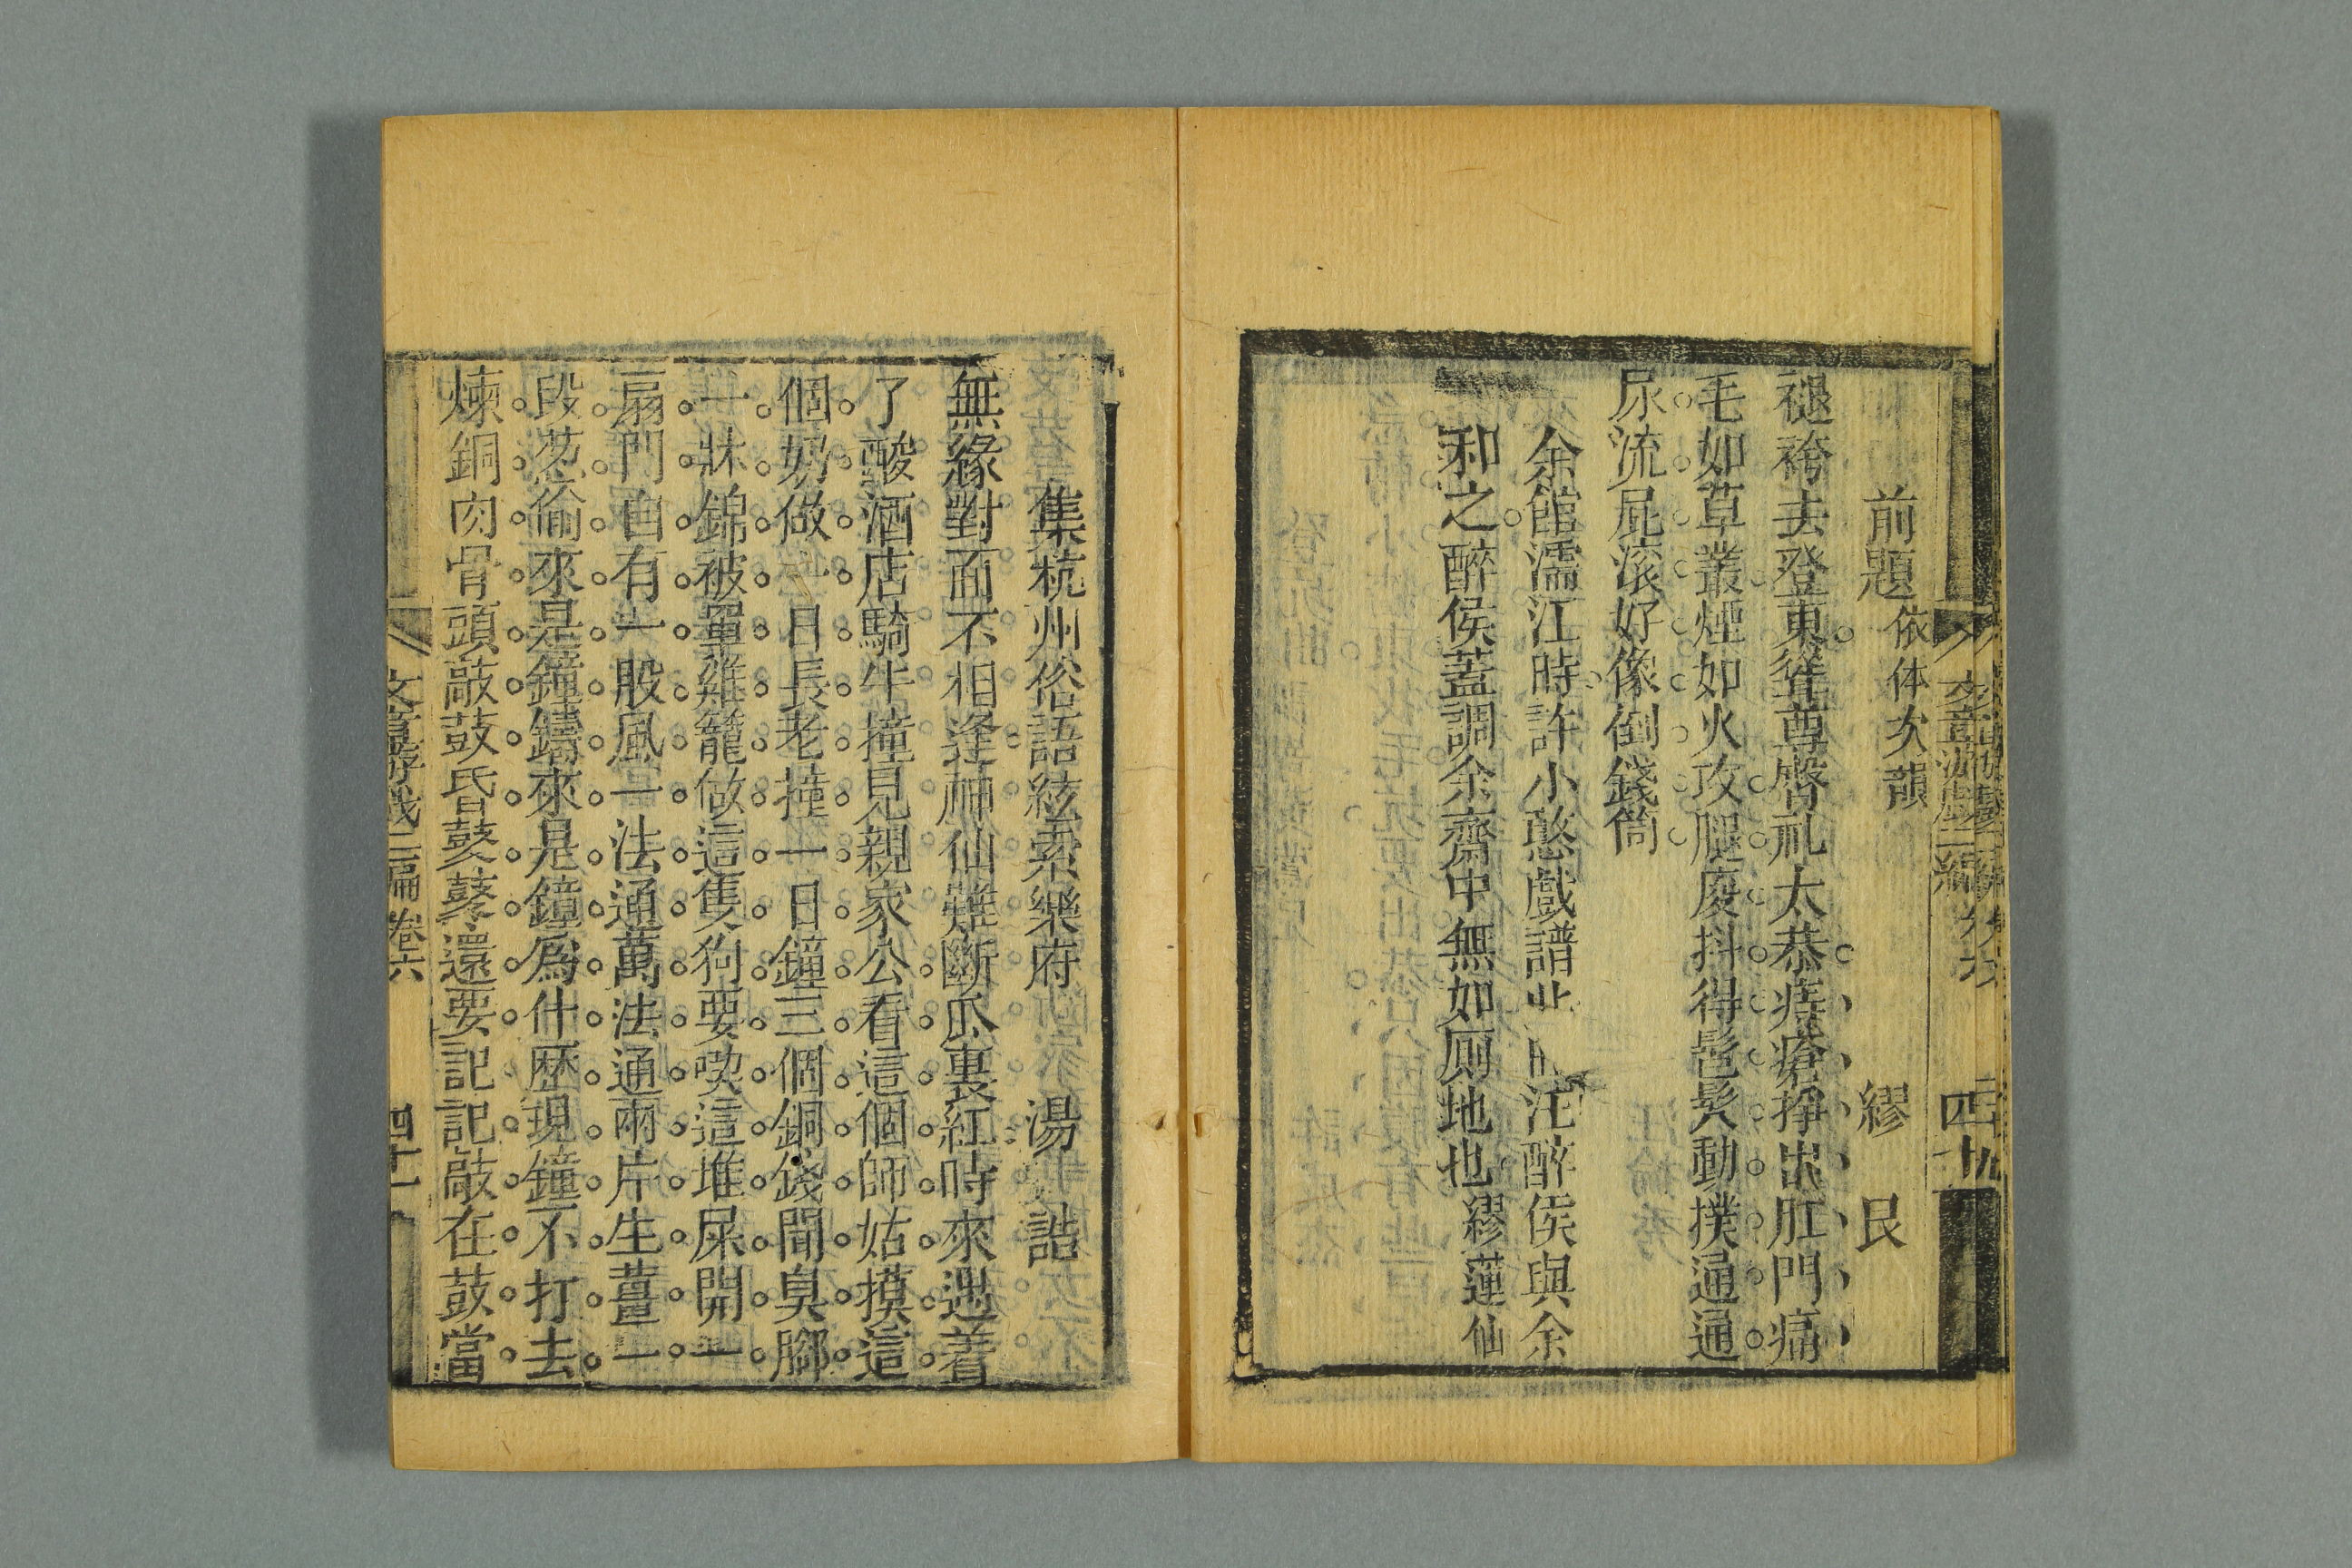 前題 依体次韻 繆艮
褪袴去登東聳尊臀禮太恭痔瘡掙出肛門痛
毛如草叢煙如火攻腿痠抖得髩髮動撲通通
尿流屁滾好像倒錢筒
余館濡江時許小憨戲譜此 汪醉侯與余
和之醉侯蓋調余齋中無如厠地也繆蓮仙
集杭州俗語絃索樂府 湯誥
無緣對面不相逢神仙難斷瓜裏紅時來遇着
了酸酒店騎牛撞見親家公看這個師姑摸這
個奶做一日長老撞一日鐘三個銅錢聞臭脚
一牀錦被單雞籠做這隻狗要喫這堆屎開一
扇門自有一股風一法通萬法通兩片生薑一
段葱偷來是鐘鑄來是鐘爲什歷現鐘不打去
煉銅肉骨頭敲鼓昏鼕鼕還要記記敲在鼓當
文章游戲三編 卷六 四十一